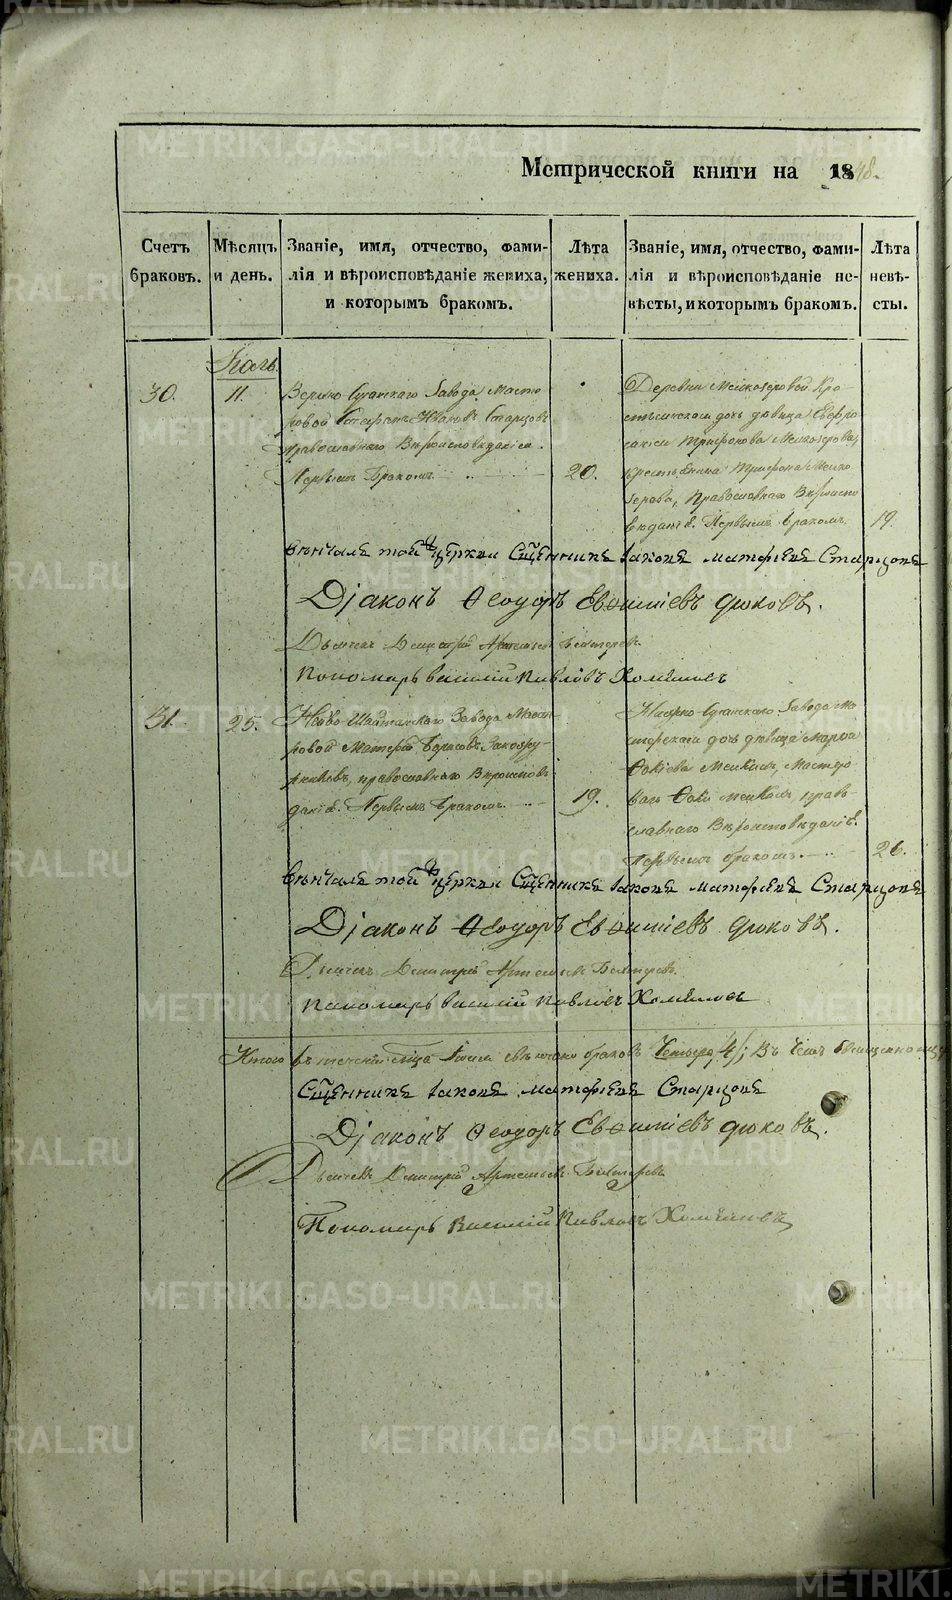 Метрической книги на 1848.
Счетъ браковъ.
Мѣсяцъ и день.
Званіе, имя, отчество, фами-
лія и вѣроисповѣданіе жениха,
и которымъ бракомъ.
Лѣта жениха.
Званіе, имя, отчество, фами-
лія и вѣроисповѣданіе не-
вѣсты, и которымъ бракомъ.
Лѣта невѣ-
сты.
30.
11.
Завода Масто
ровой Ивановъ Старцовъ
Православнаго Вѣроисповѣданія.
Первымъ Бракомъ.
20.
Деревни Мелкозеровой Кре-
дочь дѣвица Евфро
Трифонова Мелкозерова,
Трифона Мелко
зерова, Православнаго Вѣроиспо
вѣданія. Первымъ бракомъ.
19.
Вѣнчалъ той церкви Сщенникъ Іаковъ Матфѣевъ Старцовъ
Діаконъ Ѳеодоръ Евѳиміевъ Флоковъ.
Дьячекъ Димитрій Артемьевъ
Пономарь Василій Павловъ Хомяковъ
31.
25.
Ново-Шайтанскаго Завода Масте-
ровой Борисовъ
православнаго Вѣроиспов
данія. Первымъ Бракомъ.
19.
Завода Ма
дочь дѣвица Марѳа
Фокіева
Фока прав-
славнаго Вѣроисповѣданія.
Первымъ бракомъ.
26.
Вѣнчалъ той церкви Сщенникъ Іаковъ Матфѣевъ Старцовъ
Діаконъ Ѳеодоръ Евѳиміевъ Флоковъ.
Дьячекъ Димитрій Артемьевъ
Пономарь Василій Павловъ Хомяковъ
Итого въ теченіи браковъ Четыре /4/; Въ чемъ
Сщенникъ Іаковъ Матфѣевъ Старцовъ
Діаконъ Ѳеодоръ Евѳиміевъ Флоковъ.
Дьячекъ Димитрій Артемьевъ
Пономарь Василій Павловъ Хомяковъ
METRIKI.GASO-URAL.RU